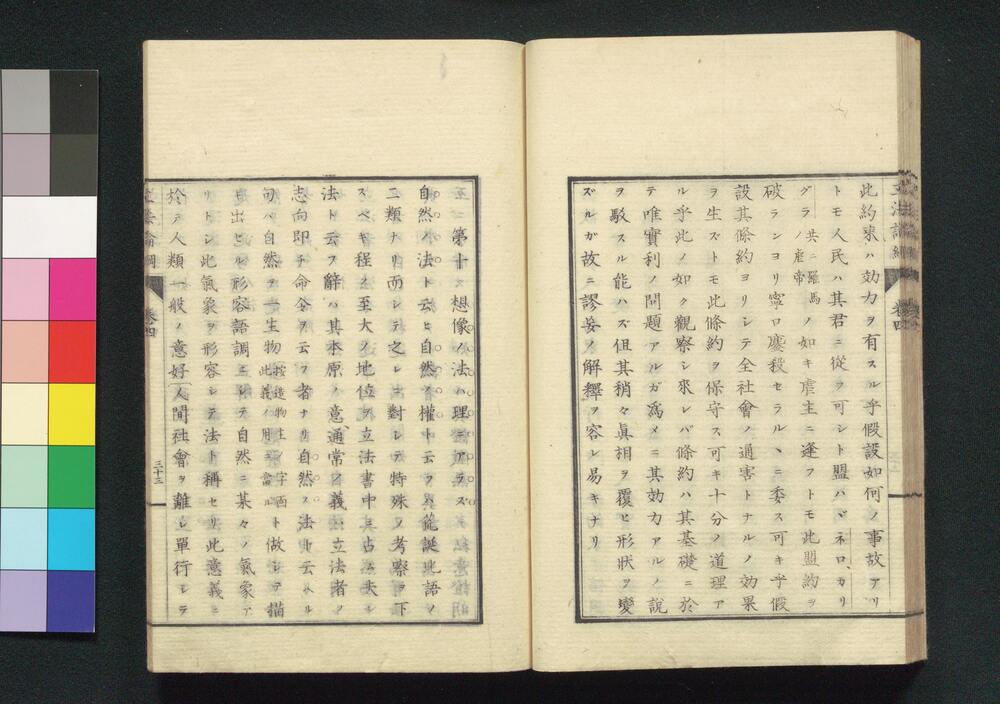 此約束ハ効力ヲ有スル乎假設如何ノ事故アリ
トモ人民ハ其君ニ從フ可シト盟ハヾネロ、カリ
グラ共ニ羅馬ノ虐帝ノ如キ虐主ニ逢フトモ此盟約ヲ
破ランヨリ寧ロ慶殺セラルヽニ委ス可キ乎假
設其條約ヨリシテ全社會ノ通害トナルノ効果
ヲ生ズトモ此條約ヲ保守ス可キ十分ノ道理ア
ル乎此ノ如ク觀察シ來レバ條約ハ其基礎ニ於
テ唯實利ノ問題アルガ爲メニ其効力アルノ說
ヲ駁スル能ハズ但其稍々眞相ヲ覆ヒ形狀ヲ變
ズルガ故ニ謬妄ノ解釋ヲ容レ易キナリ
第十 想像ノ法ハ理ニアラズ
自然ノ法ト云ヒ自然ノ權ト云フハ荒誕比語ノ
二類ナリ而シテ之レニ對シテ特殊ノ考察ヲ下
スベキ程ニ至大ノ地位ヲ立法書中ニ占ム夫レ
法ト云フ辭ハ其本原ノ意通常ノ義ハ立法者ノ
志向即チ命令ヲ云フ者ナリ自然ノ法ト云ヘル
句ハ自然ヲ一生物按造物主ノ字面此義ノ用ニ當ルト做シテ描
出セル形容語調ニシテ自然ニ某々ノ氣象ア
リトシ此氣象ヲ形容シテ法ト稱セリ此意義ニ
於テ人類一般ノ意好人間社會ヲ離レ單行シテ
卷四
三十三